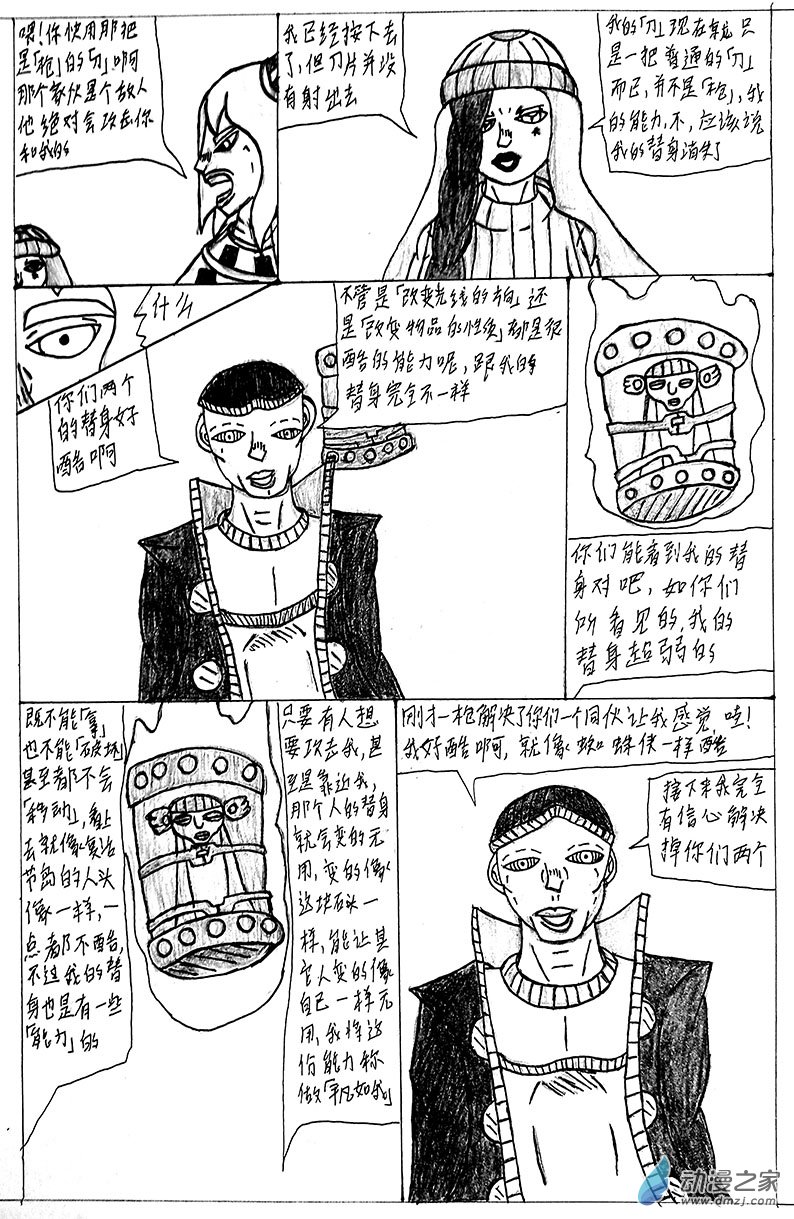 喂！你快用那把
是「枪」的「刀」啊
那个家伙是个敌人
他绝对会攻击你
和我的
我已经按下去
了，但刀片并没
有射出去
我的「刀」现在就只
是一把普通的「刀」
而已，并不是「枪」，我
的能力，不，应该说
我的替身消失了
什么
你们两个
的替身好
酷啊
不管是「改变光线的方向」还
是「改变物品的性质」都是很
酷的能力呢，跟我的
替身完全不一样
你们能看到我的替
身对吧，如你们
所看见的，我的
替身超弱的
既不能「拿」
也不能「破坏」
甚至都不会
「移动」，看上
去就像复活
节岛的人头
像一样，一
点都不酷，
不过我的替
身也是有一些
「能力」的
只要有人想
要攻击我，甚
至是靠近我，
那个人的替身
就会变的无
用，变的像
这块石头一
样，能让其
它人变的像
自己一样无
用，我将这
份能力称
做「平凡如我」
刚才一枪解决了你们一个同伙让我感觉，哇！
我好酷啊，就像蜘蛛侠一样酷
接下来我完全
有信心解决
掉你们两个
动漫之家
www.dmzj.com